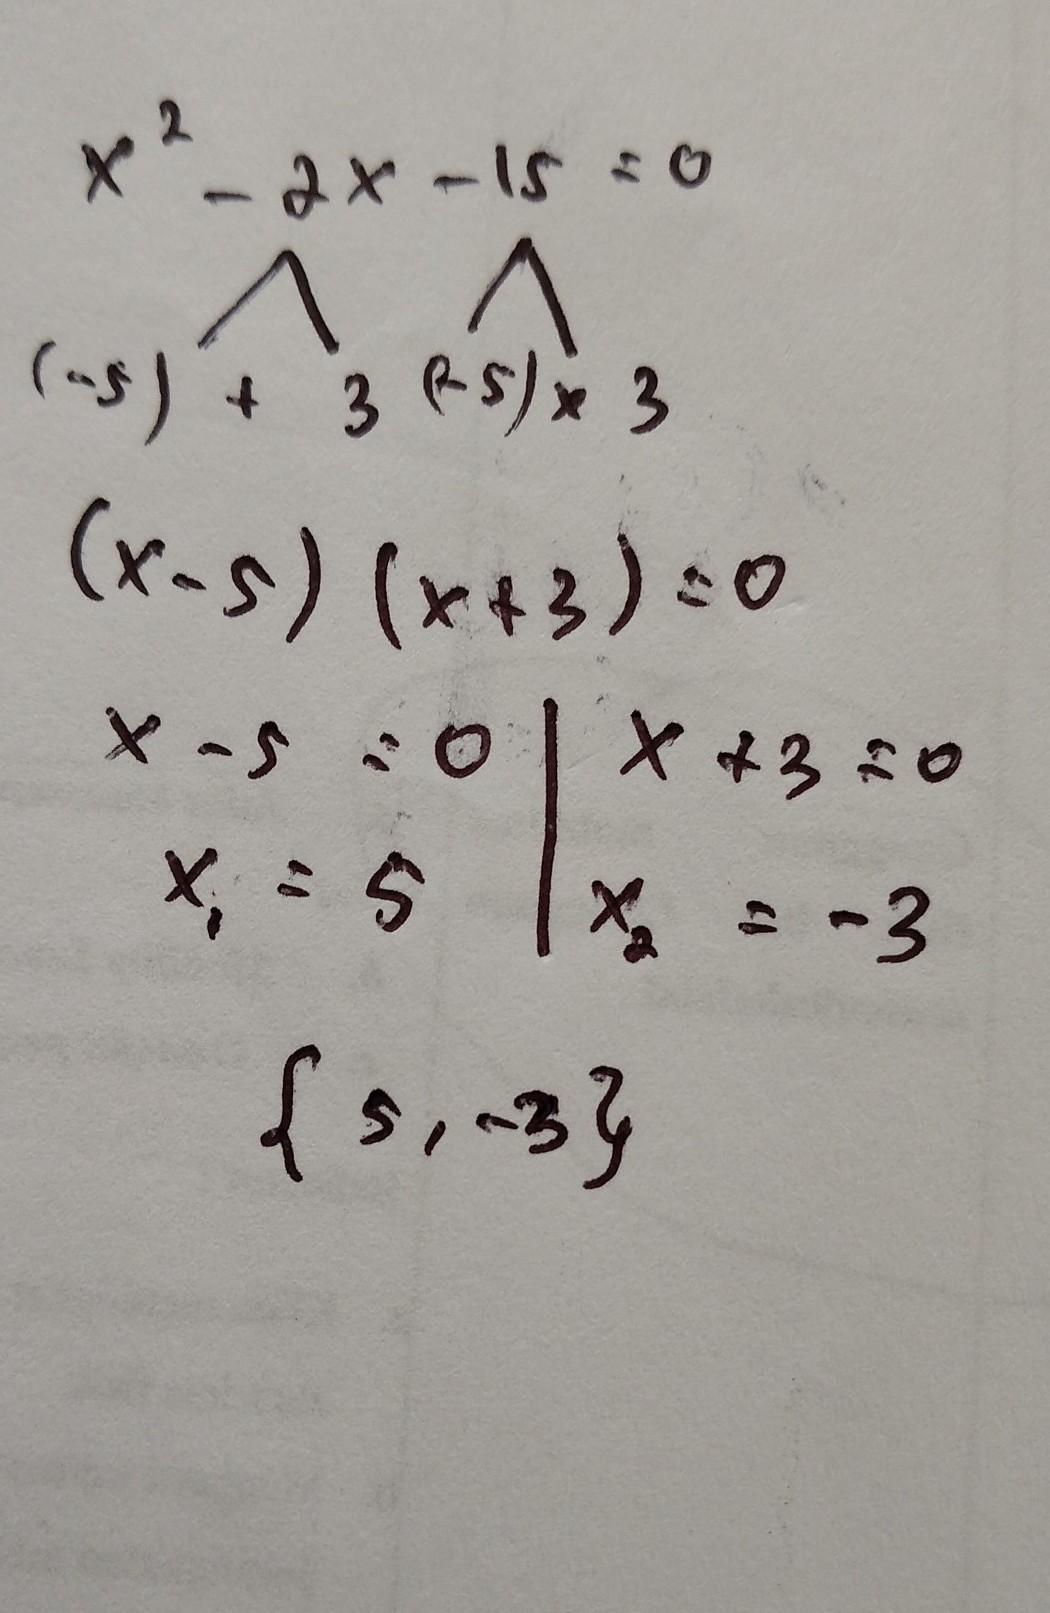 x² - 2x - 15 = 0
(-5) + 3 (-5) x 3
(x-5) (x+3) = 0
x - 5 = 0 | x + 3 = 0
x₁ = 5 | x₂ = -3
{ 5, -3}